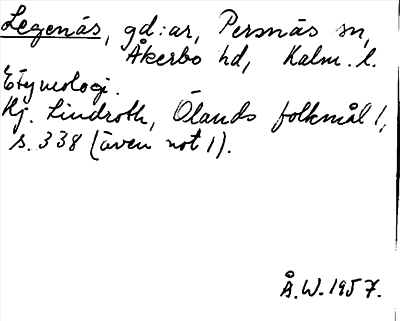 Legenäs, gd:ar, Persnäs sn,
Åkerbo hd, Kalm. l.
Etymologi.
Hj. Lindroth, Ölands folkmål I,
s. 338 (även not 1).
Å.W. 1957.